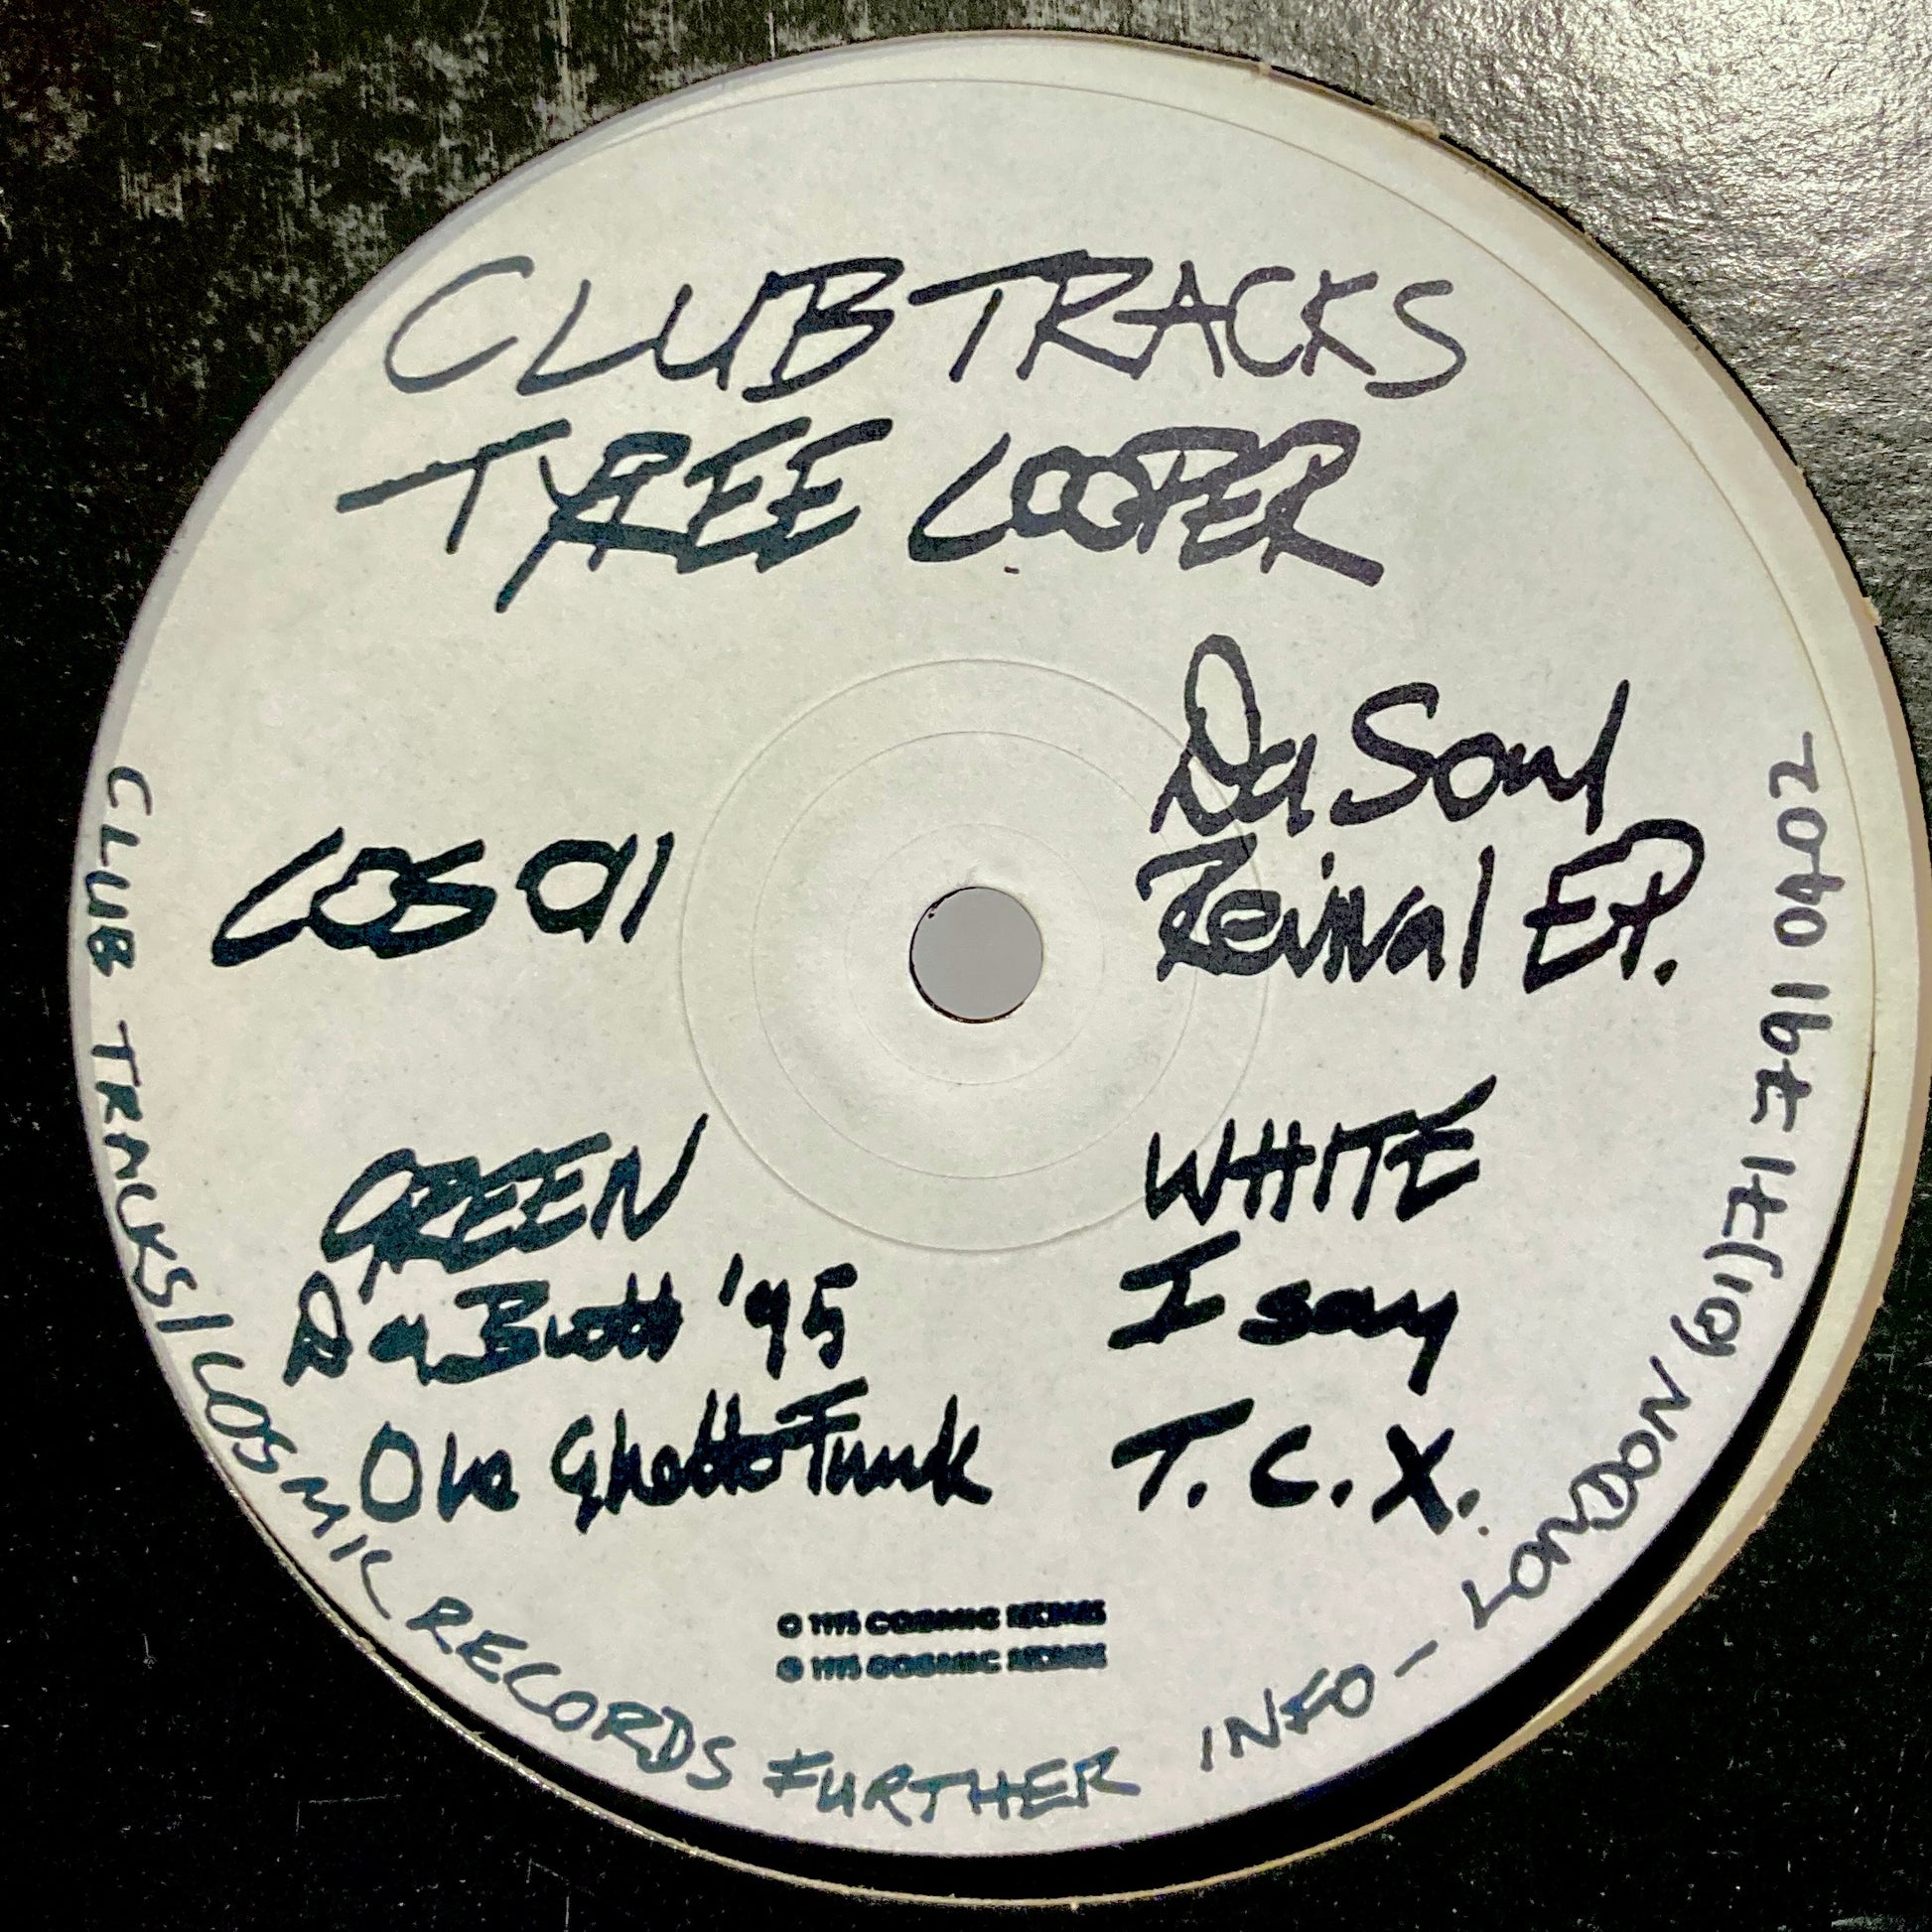 CLUB TRACKS
TYREE COOPER
Da Soul
Revival EP.
COS 011
GREEN
Da Butt '95
One Ghetto Funk
WHITE
I say
T.C.X.
© 1995 COSMIC RECORDS
℗ 1995 COSMIC RECORDS
CLUB TRACKS/COSMIC RECORDS FURTHER INFO - LONDON (0)171 261 0402